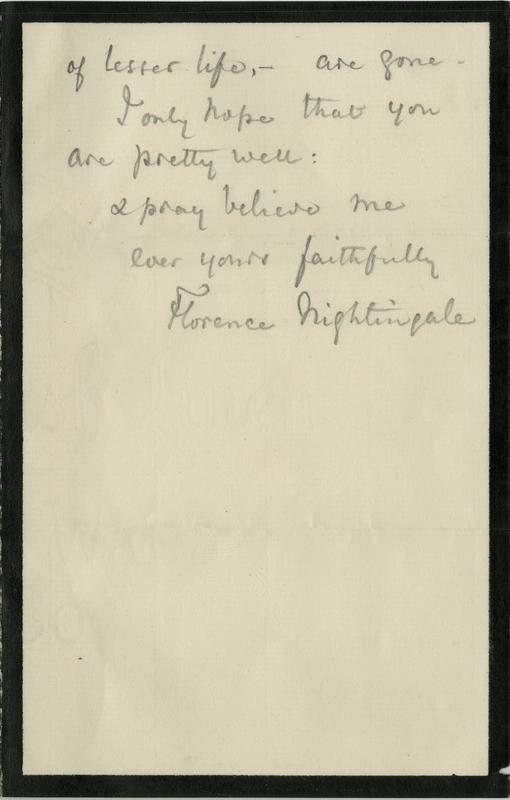 of lesser life,- are gone -
I only hope that you
are pretty well:
& pray believe me
ever yours faithfully
Florence Nightingale